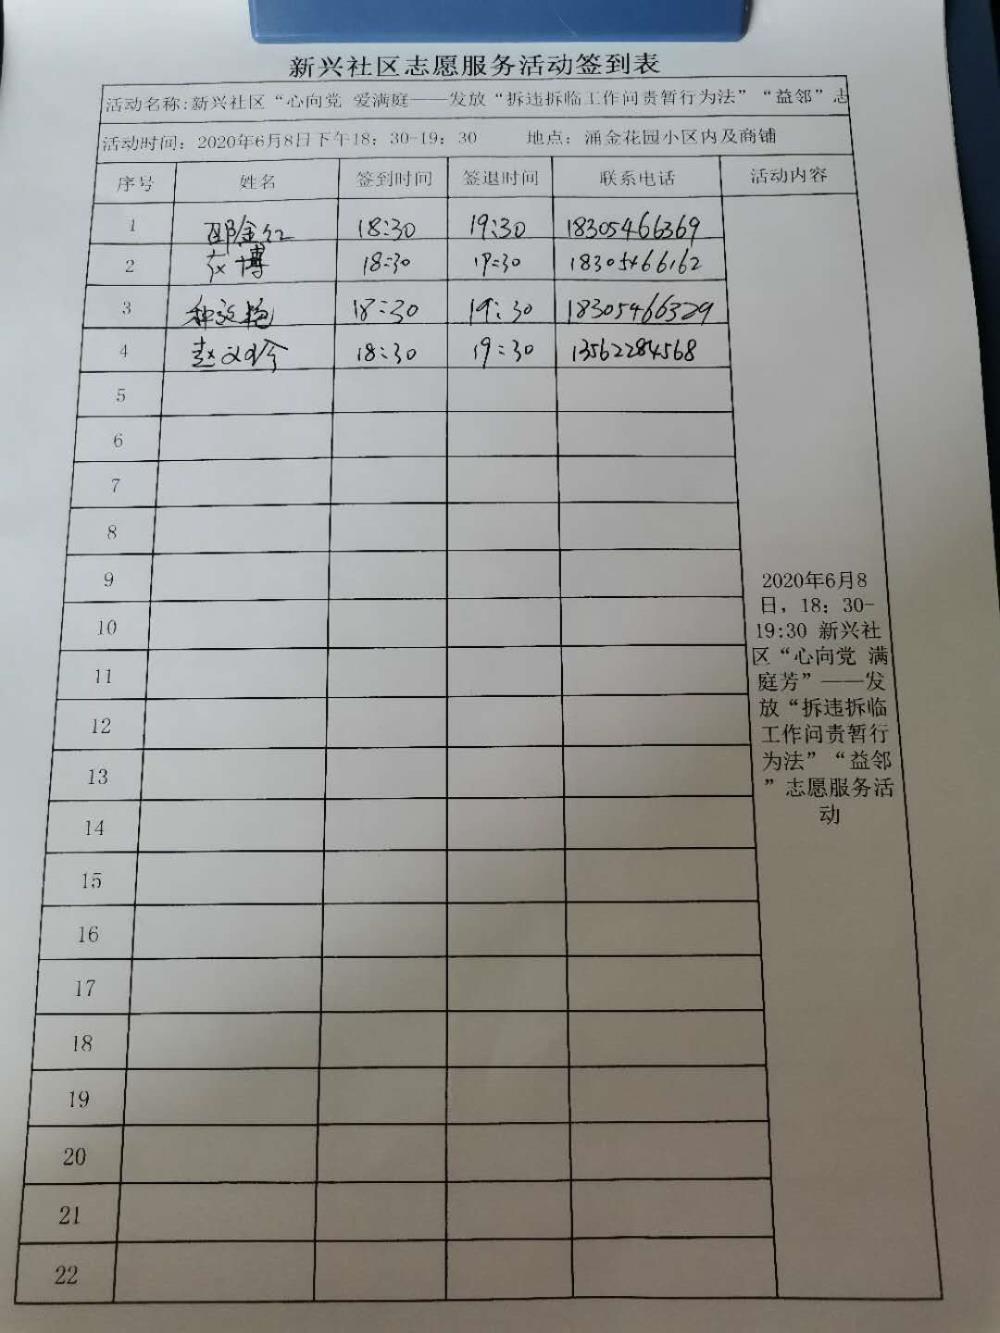 新兴社区志愿服务活动签到表
活动名称:新兴社区“心向党 爱满庭——发放“拆违拆临工作问责暂行为法”“益邻”志
活动时间：2020年6月8日下午18：30-19：30 地点：涌金花园小区内及商铺
序号 姓名 签到时间 签退时间 联系电话 活动内容
1 邵金红 18:30 19:30 18305466369
2 博 18:30 19:30 18305466162
3 18:30 19:30 18305466329
4 赵 18:30 19:30 13562284568
5
6
7
8
9
10
11
12
13
14
15
16
17
18
19
20
21
22
2020年6月8
日，18：30-
19:30 新兴社
区“心向党 满
庭芳”——发
放“拆违拆临
工作问责暂行
为法”“益邻
”志愿服务活
动